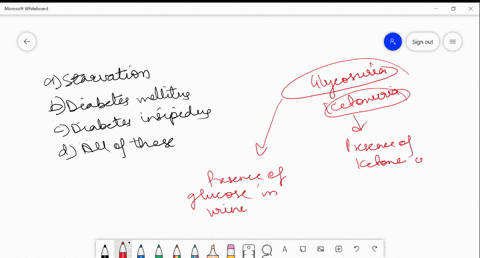 Microsoft Whiteboard
Sign out
a) Starvation
b) Diabetes mellitus
c) Diabetes insipidus
d) All of these
Glycosuria
Ketonuria
Presence of
glucose in
urine
Presence of
ketone